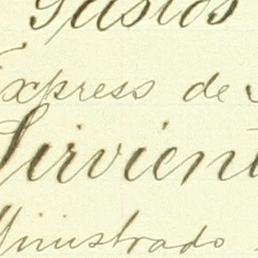 Gastos
Express de
Sirvient
Ministrado